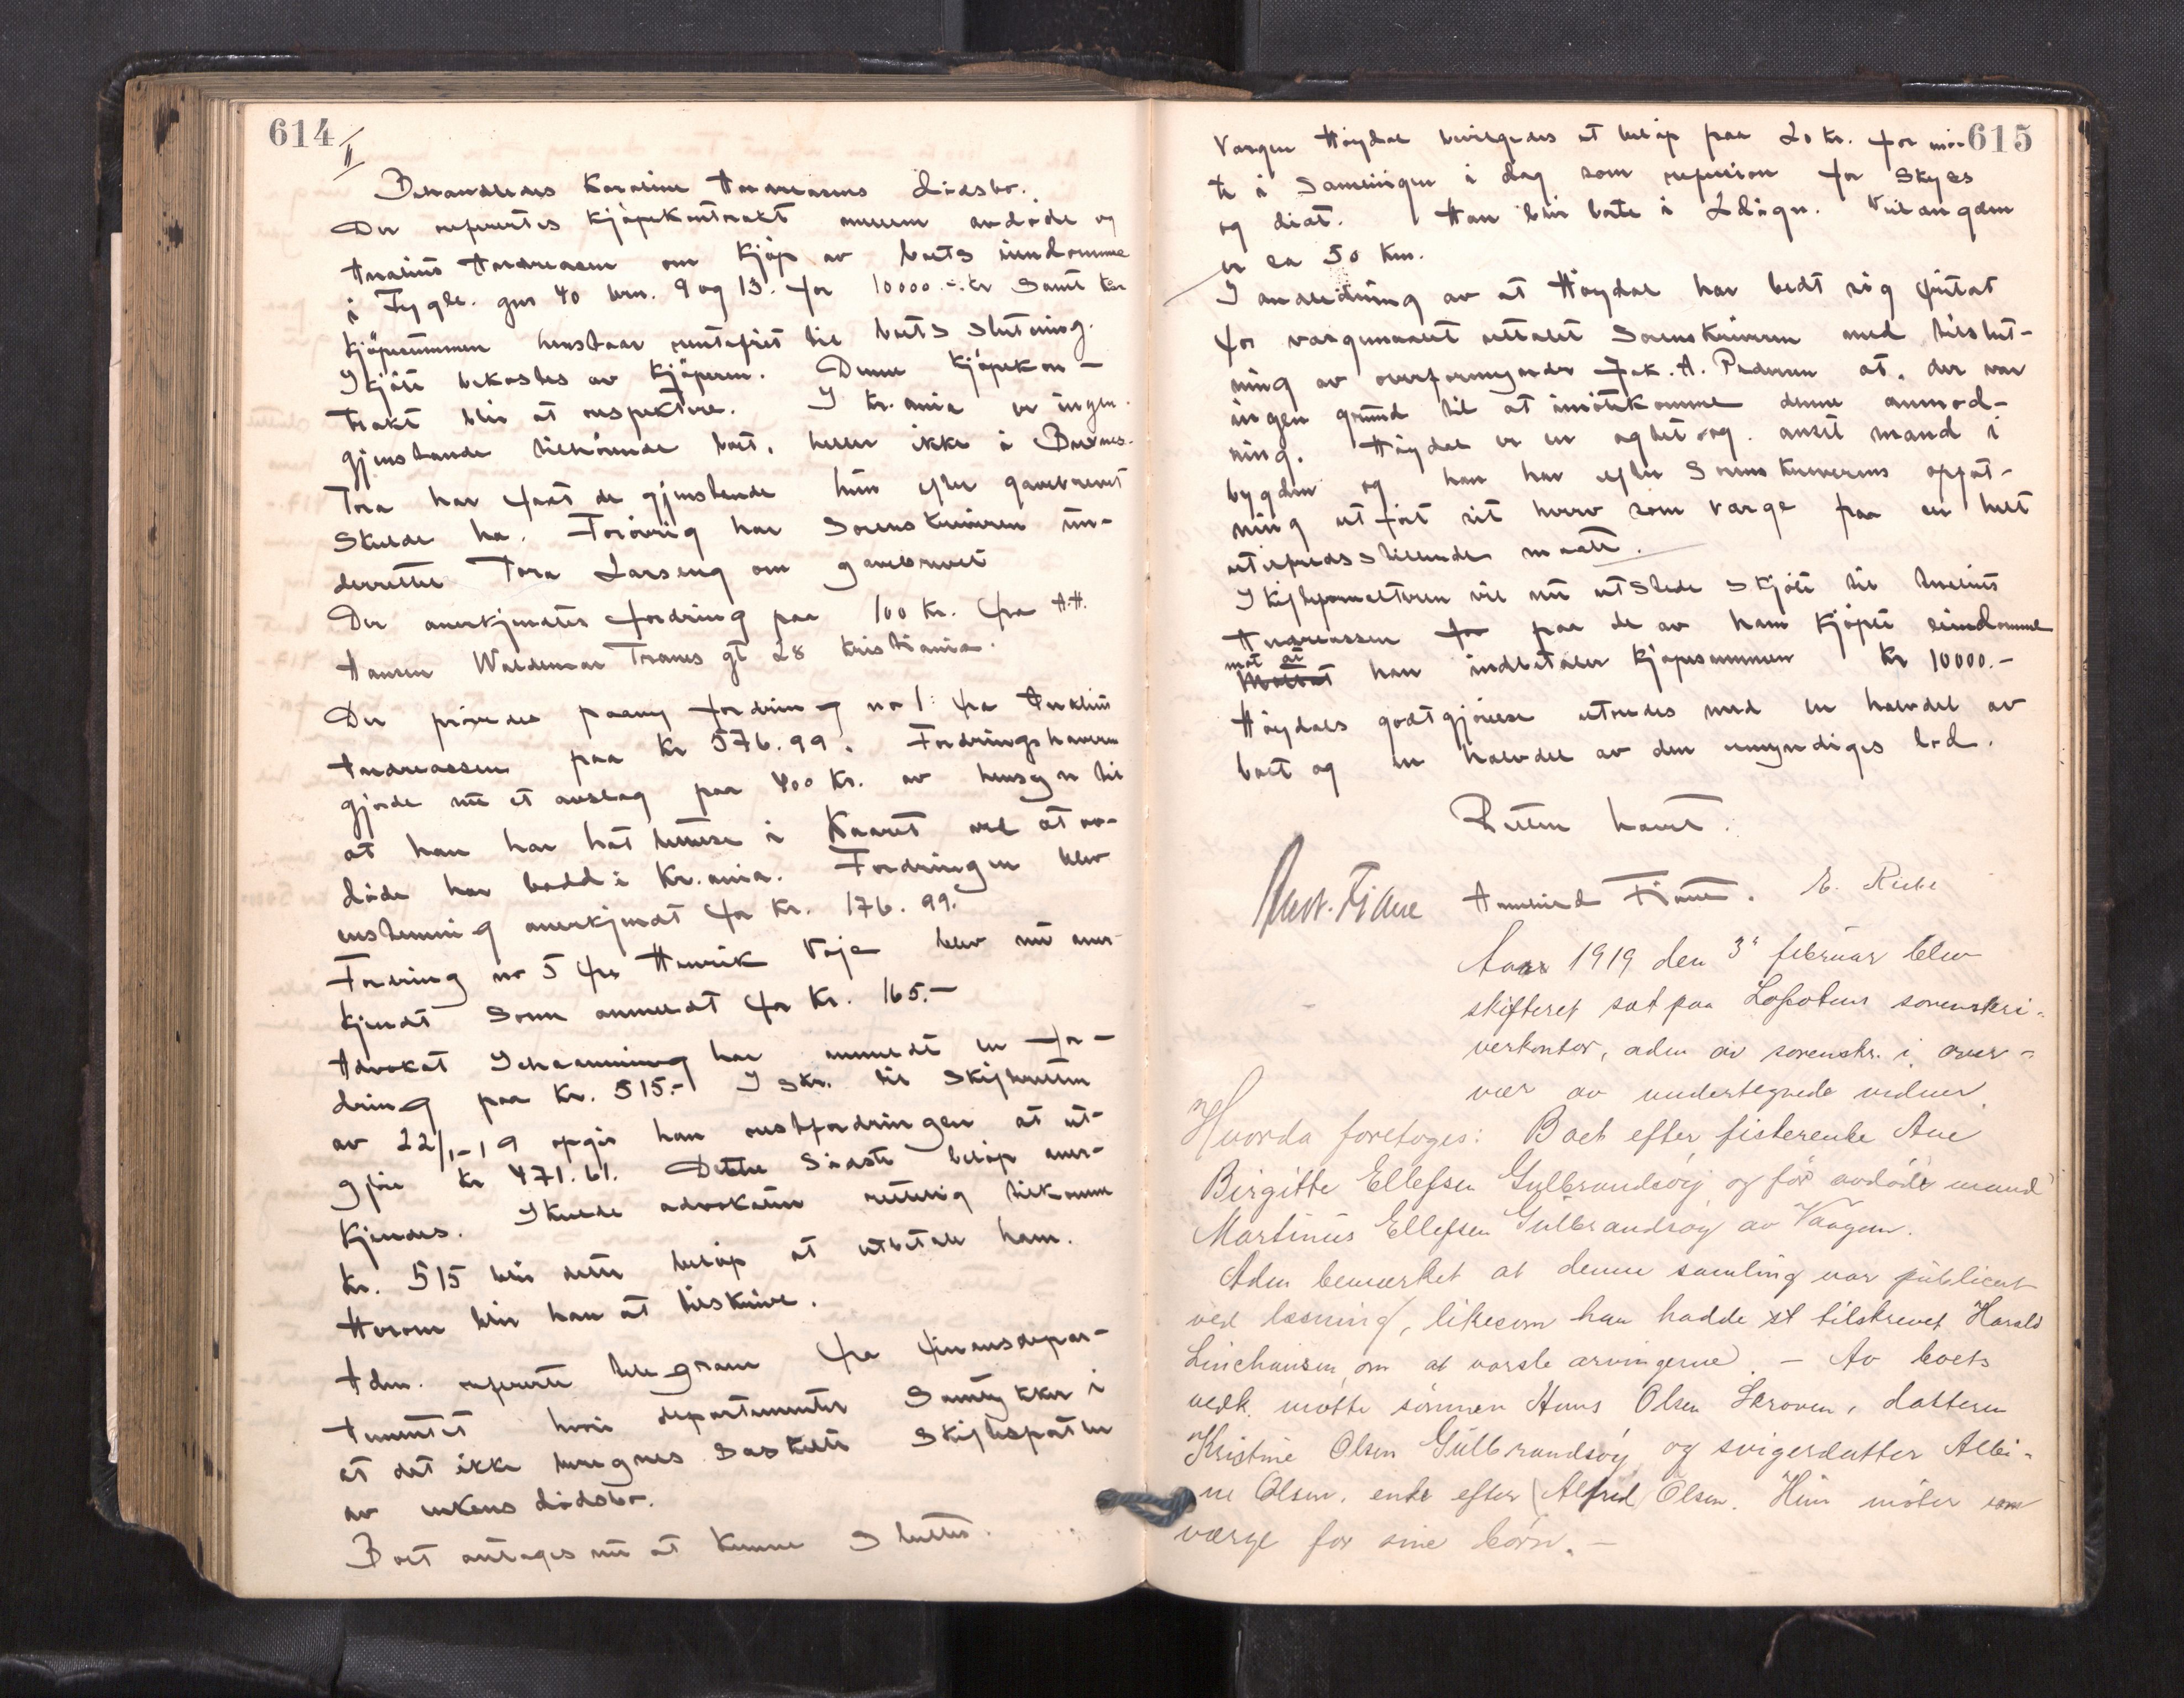 614
II
Behandledes Karoline Andreasens dødsbo.
Der refertes kjøpekontrakt mellem avdøde og
Analius Andreasen om kjøp av boets eiendomme
i Fygle. gnr 40 brn. 9 og 13. for 10000.- kr samt
kjøpesummen henstaar rentefrit til boets slutning.
Skjøte bekostes av kjøperen. Denne kjøpekon-
trakt blir at respektere. I Kr.ania er ingen
gjenstande tilhørende boet, heller ikke i Borves-
Tora har faat de gjenstande hun efter gavebrevet
skulde ha. Forøvrig har Sorenskriveren un-
derrettet Tora Larseng om gavebrevet
Der anerkjendtes fordring paa 100 kr. fra A.H.
Hansen Waldemar Tranes gt 28 Kristiania.
Der prøvedes paany fordring no 1: fra
Andreassen paa kr 576.99. Fordringshaveren
gjorde nu et avslag paa 400 kr. av hensyn til
at han har hat lettelse i Kaaret ved at av-
døde har bodd i Kr.ania. Fordringen blev
enstemmig anerkjendt for kr. 176.99.
Fordring no 5 fra Henrik Voje blev nu aner-
kjendt som anmeldt for kr. 165.-
Advokat har anmeldt en for-
dring paa kr. 515.- I skr. til Skifteretten
av 22/1-19 opgir han restfordringen at ut-
gjøre kr 471.61. Dette sidste beløp aner-
kjendes. Skulde advokaten rettelig tilkomme
kr. 515 blir dette beløp at utbetale ham.
Herom blir han at tilskrive.
Adm. refererte telegram fra finansdepar-
tementet hvori departementet samtykker i
at det ikke beregnes særskilt skifteseparat
av enkens dødsbo.
Boet antages nu at kunne sluttes.
615
Vergen Høydal bevilgedes et beløp paa 20 kr. for mø-
te i samlingen i dag som refusion for skyss
og diæt. Han blir borte i 2 døgn. Veilængden
er ca 50 km.
I anledning av at Høydal har bedt sig fritat
for vergemaalet uttalte Sorenskriveren med tilslut-
ning av overformynder Fak. A. Pedersen at, der var
ingen grund til at imøtekomme denne anmod-
ning. Høydal er en agtet og anset mand i
bygden og han har efter Sorenskriverens opfat-
ning utført sit hverv som verge paa en helt
utilfredsstillende maate.
Skifteforvalteren vil nu utstede skjøte til
Andreassen for paa de av ham kjøpte eiendomme
mot at han indbetaler kjøpesummen kr 10000.-
Høydals godtgjørelse utredes med en halvdel av
boet og en halvdel av den umyndiges lod.
Retten hævet.
Fiane Fiane. E. Riebe
Aar 1919 den 3' februar blev
skifteret sat paa Lofotens sorenskri-
verkontor, adm av sorenskr. i over-
vær av undertegnede vidner.
Hvorda foretoges: Boet efter fisterenke Ane
Birgitte Ellefsen Gulbrandsøy og før avdøde mand
Martinus Ellefsen Gulbrandsøy av Vaagan.
Adm bemerket at denne samling var publicert
ved læsning, likesom han hadde tilskrevet Harald
Linchausen om at varsle arvingerne. - Av boets
vedk. møtte sønnen Hans Olsen Skroven, datteren
Kristine Olsen Gulbrandsøy, og svigerdatter Albi-
ne Olsen, enke efter Alfred Olsen. Hun møter som
værge for sine børn. -